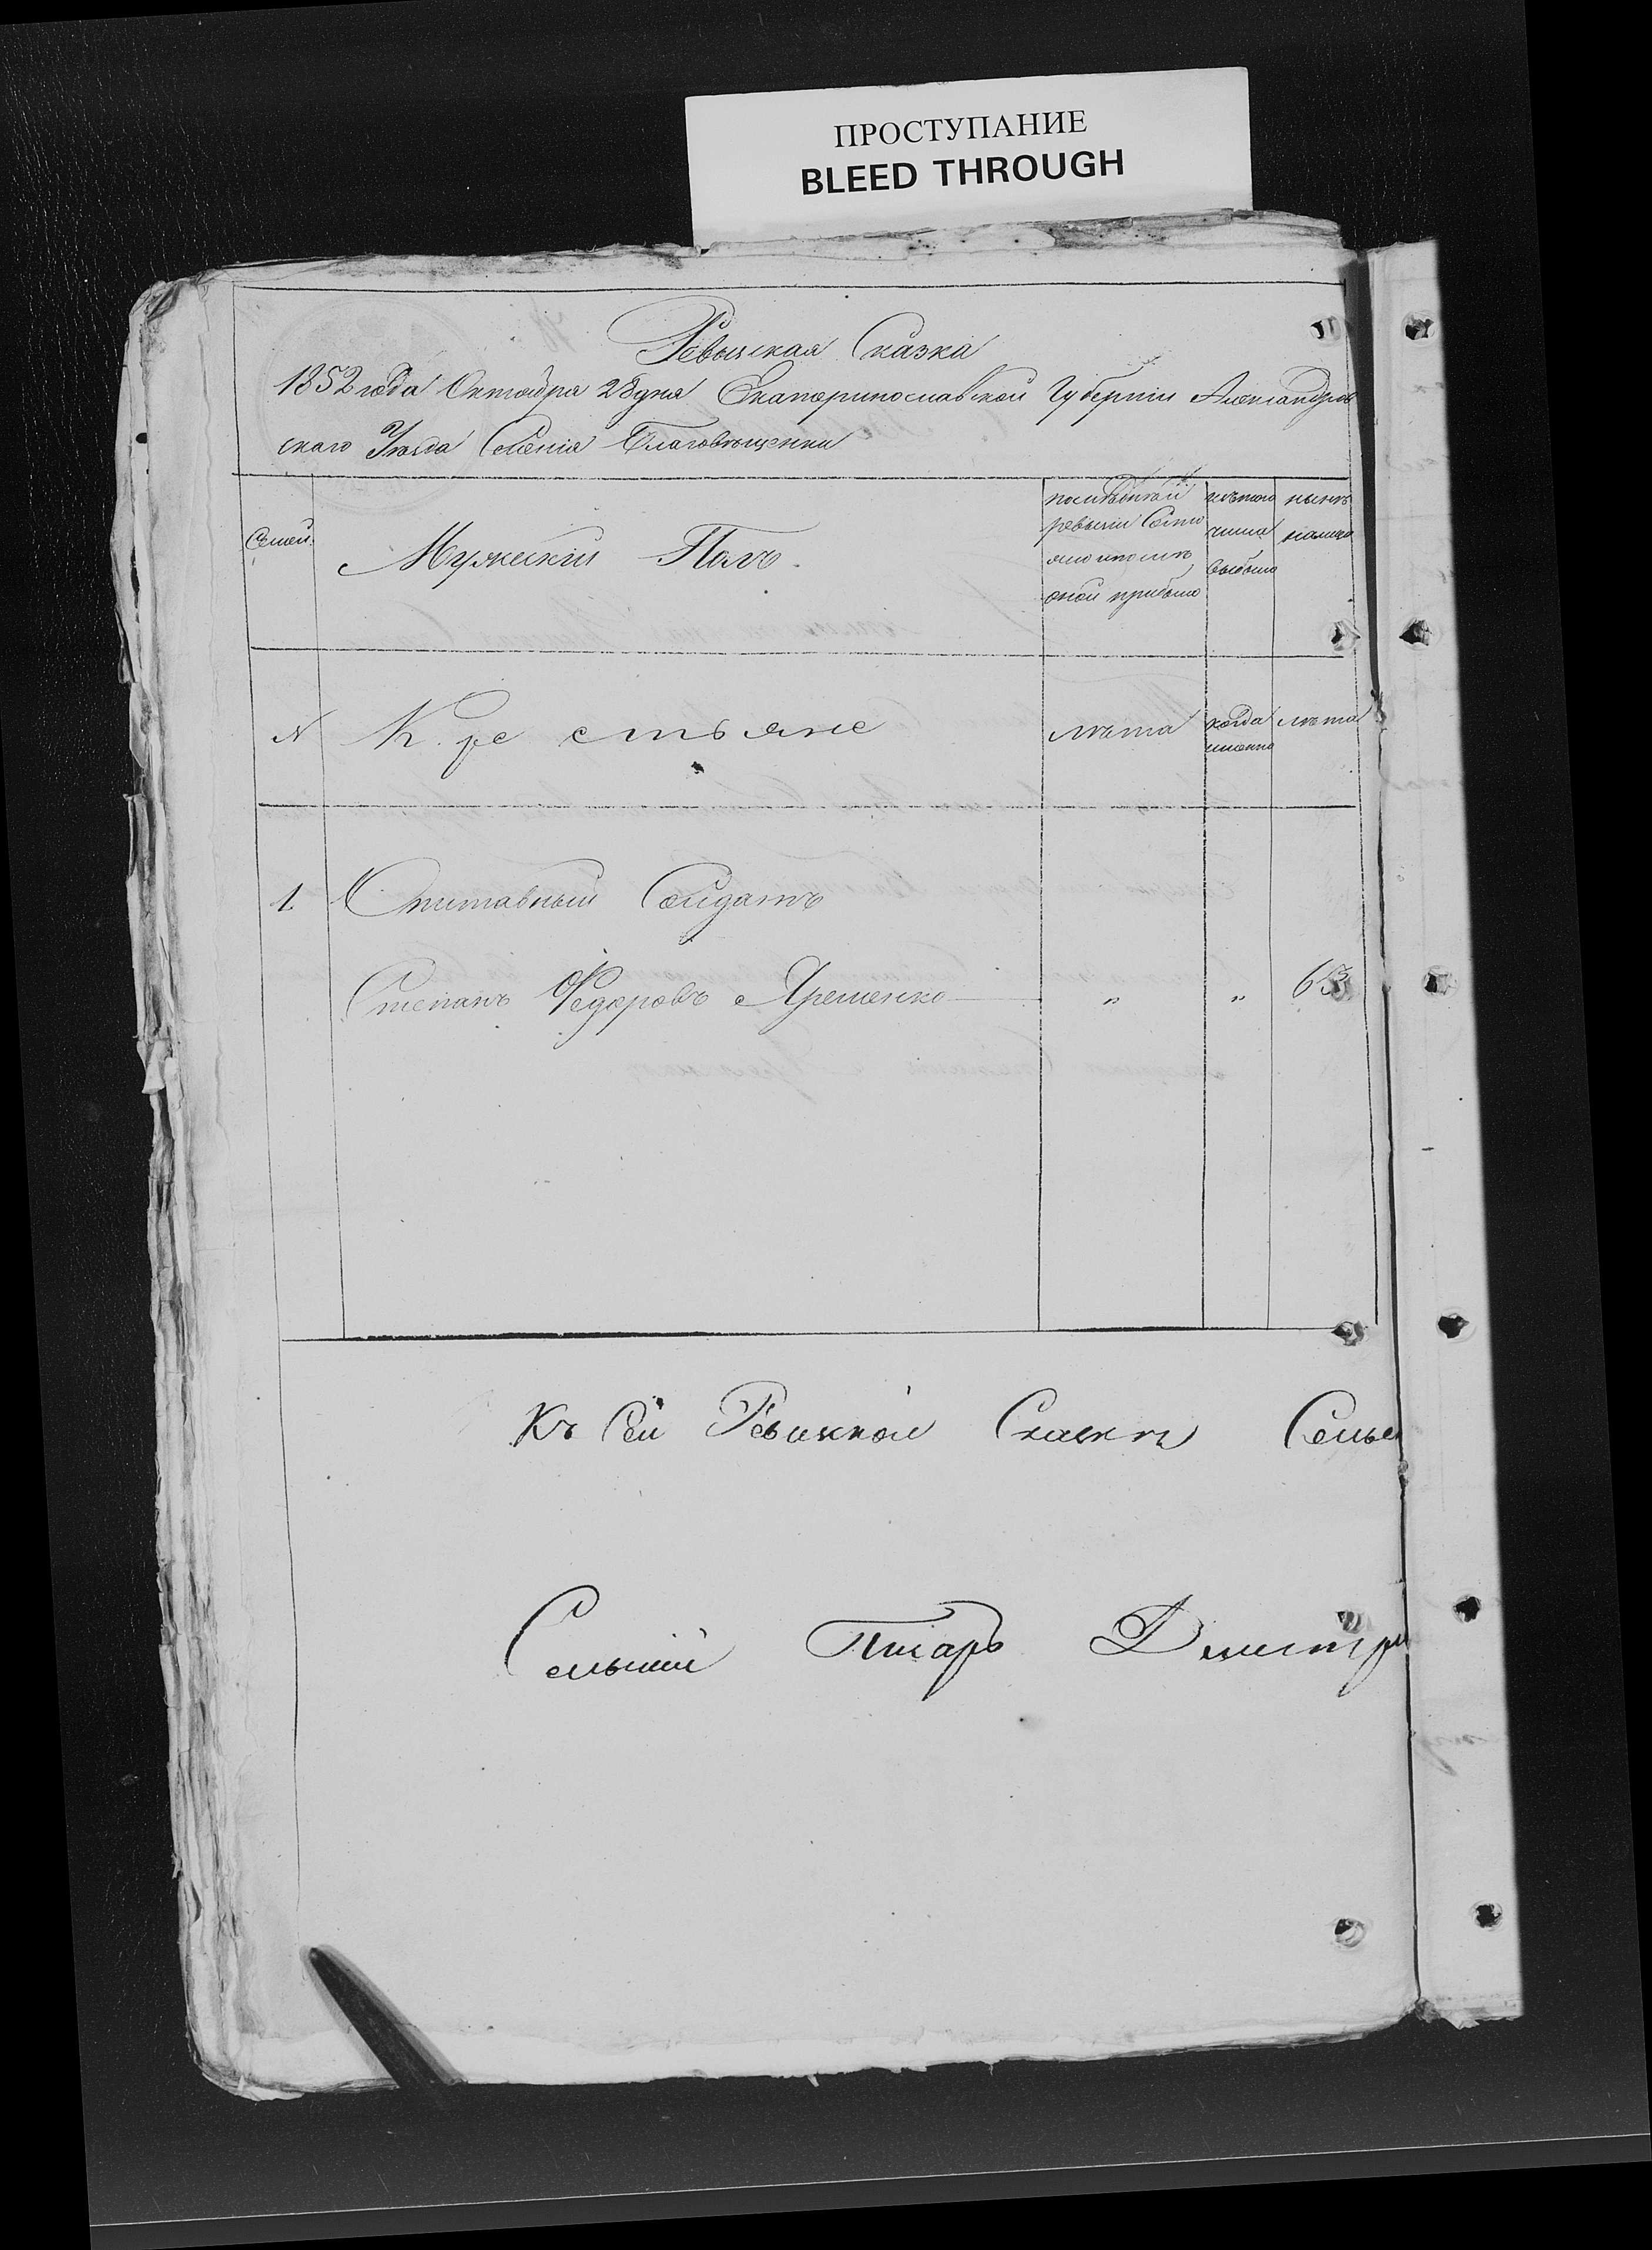 ПРОСТУПАНИЕ
BLEED THROUGH
Ревизская Сказка
1852 года Октября 28 дня Екатеринославской Губернии Александров
скаго Уѣзда Селенія Благовѣщенки
Семей.
Мужескій Полъ.
по
ревизіи Состо
оной прибыло
изъ того
числа
выбыло
нынѣ
налицо
N
Крестьяне
лѣта
когда
именно
лѣта
1
Отставный Солдатъ
Степанъ Федоровъ Яременко
" " 63
Къ Сей Ревизкой Сказкѣ Сель
Сельский Писарь Дмитри